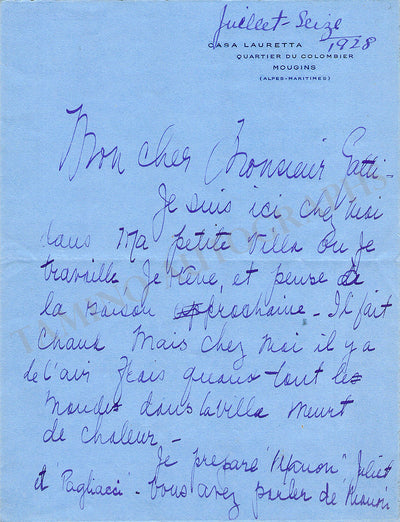 Juillet-Seize
1928
CASA LAURETTA
QUARTIER DU COLOMBIER
MOUGINS
(ALPES-MARITIMES)
Mon cher Monsieur Gatti-
Je suis ici chez moi
dans ma petite Villa ou Je
travaille Je rêve, et pense de
la saison prochaine - Il fait
chaud Mais chez moi il y a
de l'air frais quand tout le
monde dans la ville meurt
de chaleur -
Je prepare "Manon" Juliet
et "Pagliacci" - Vous avez parler de
TAMINO AUTOGRAPHS